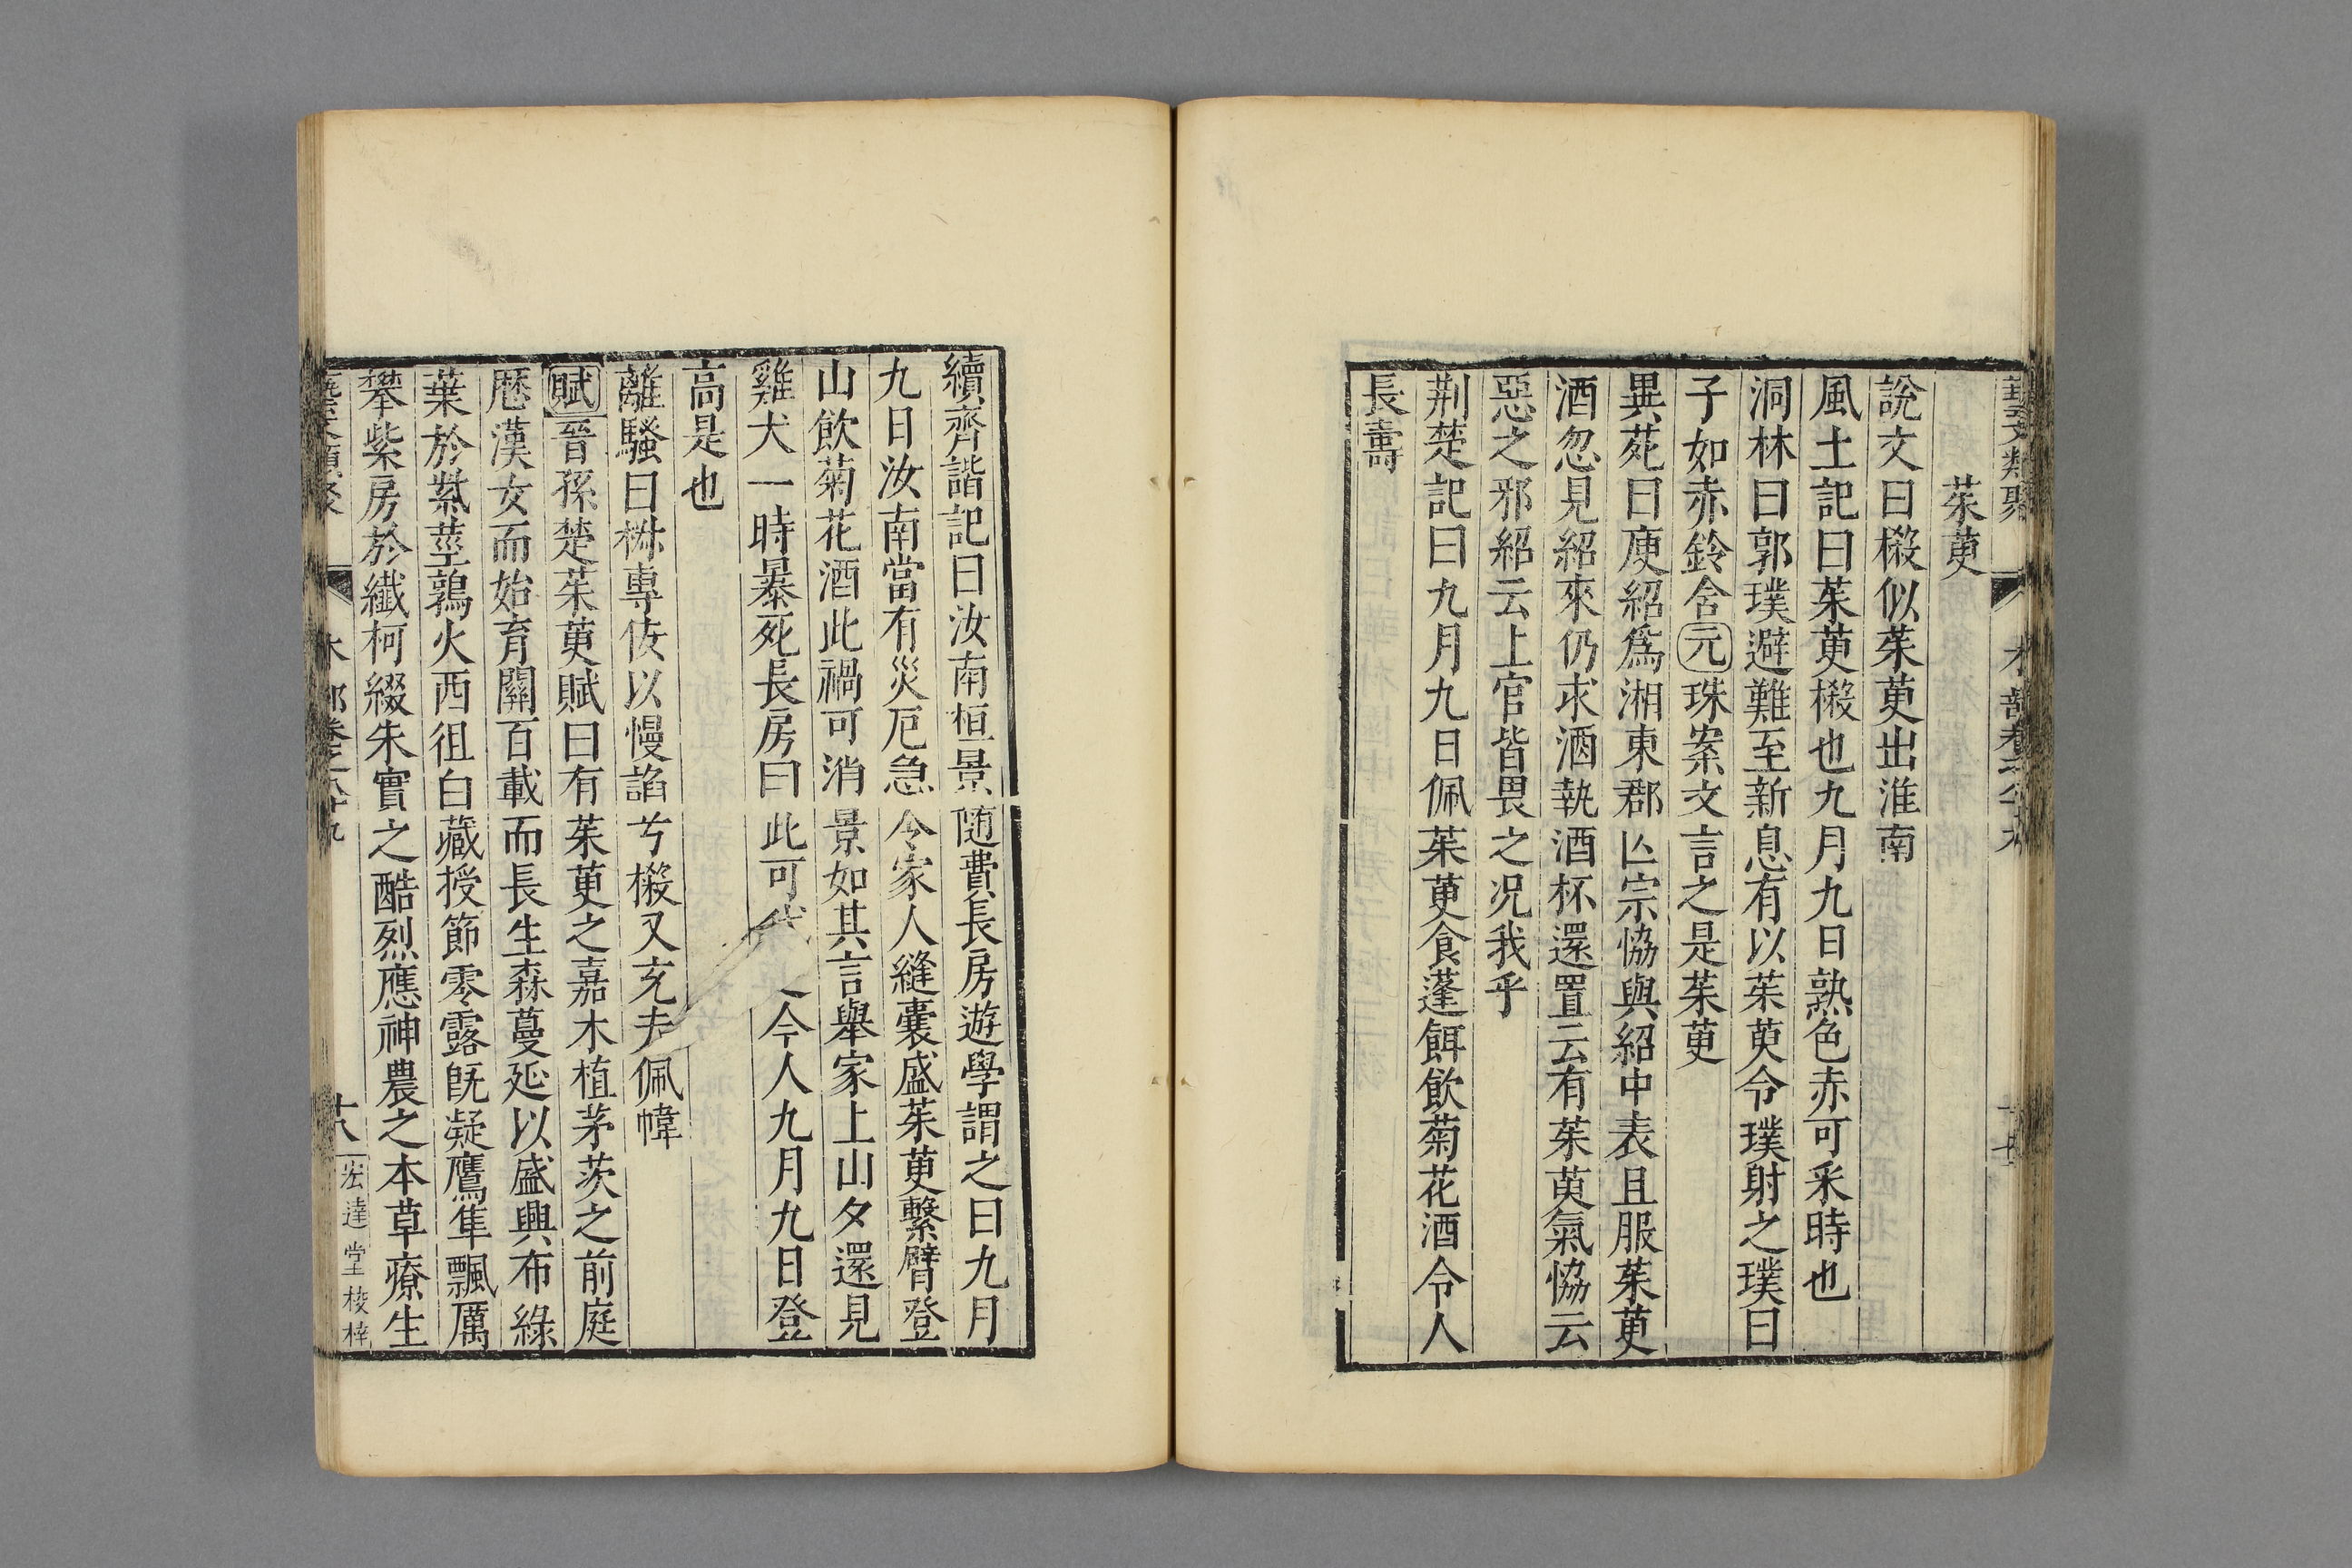 茱萸
說文曰樧似茱萸出淮南
風土記曰茱萸樧也九月九日熟色赤可采時也
洞林曰郭璞避難至新息有以茱萸令璞射之璞曰
子如赤鈴含元珠案文言之是茱萸
異苑曰庾紹爲湘東郡亾宗恊與紹中表且服茱萸
酒忽見紹來仍求酒執酒杯還置云有茱萸氣恊云
惡之邪紹云上官皆畏之况我乎
荆楚記曰九月九日佩茱萸食蓬餌飲菊花酒令人
長壽
續齊諧記曰汝南桓景隨費長房遊學謂之曰九月
九日汝南當有災厄急令家人縫囊盛茱萸繫臂登
山飲菊花酒此禍可消景如其言舉家上山夕還見
雞犬一時暴死長房曰此可代之今人九月九日登
高是也
離騷曰椒專佞以慢諂兮樧又充夫佩幃
賦晉孫楚茱萸賦曰有茱萸之嘉木植茅茨之前庭
歷漢女而始育關百載而長生森蔓延以盛興布綠
葉於紫莖鶉火西徂白藏授節零露旣凝鷹隼飄厲
攀紫房於纖柯綴朱實之酷烈應神農之本草療生
十八
宏達堂校梓